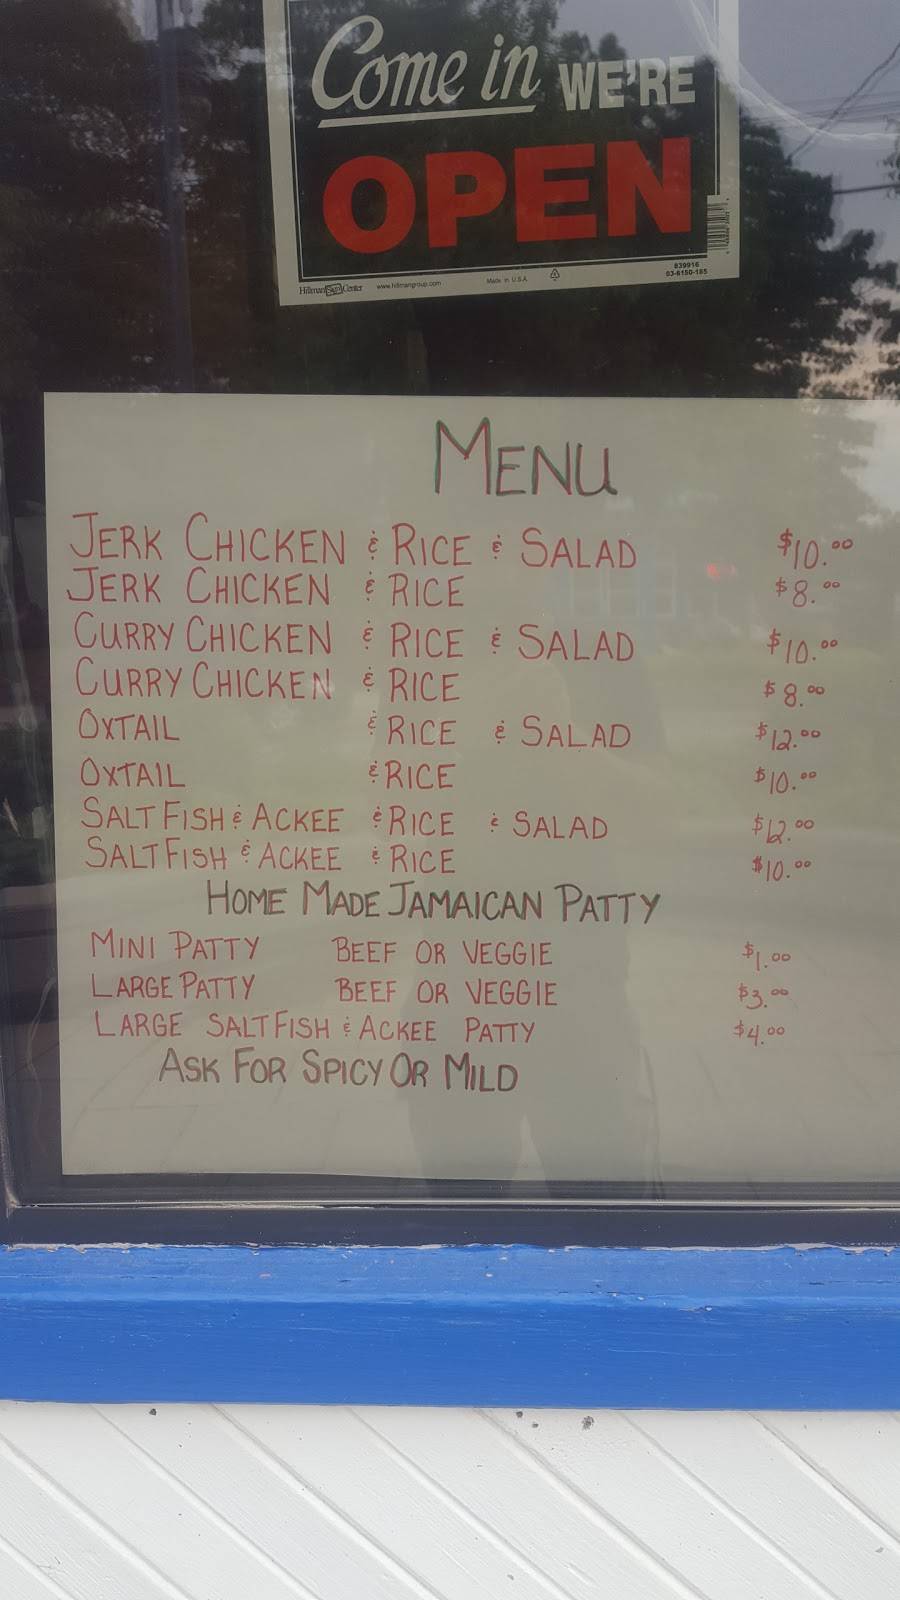 Come in WE'RE
OPEN
839916
03-6150-165
Hillman Sign Center www.hillmangroup.com Made in U.S.A.
MENU
JERK CHICKEN & RICE & SALAD $10.00
JERK CHICKEN & RICE $8.00
CURRY CHICKEN & RICE & SALAD $10.00
CURRY CHICKEN & RICE $8.00
OXTAIL & RICE & SALAD $12.00
OXTAIL & RICE $10.00
SALT FISH & ACKEE & RICE & SALAD $12.00
SALTFISH & ACKEE & RICE $10.00
HOME MADE JAMAICAN PATTY
MINI PATTY BEEF OR VEGGIE $1.00
LARGE PATTY BEEF OR VEGGIE $3.00
LARGE SALTFISH & ACKEE PATTY $4.00
ASK FOR SPICY OR MILD